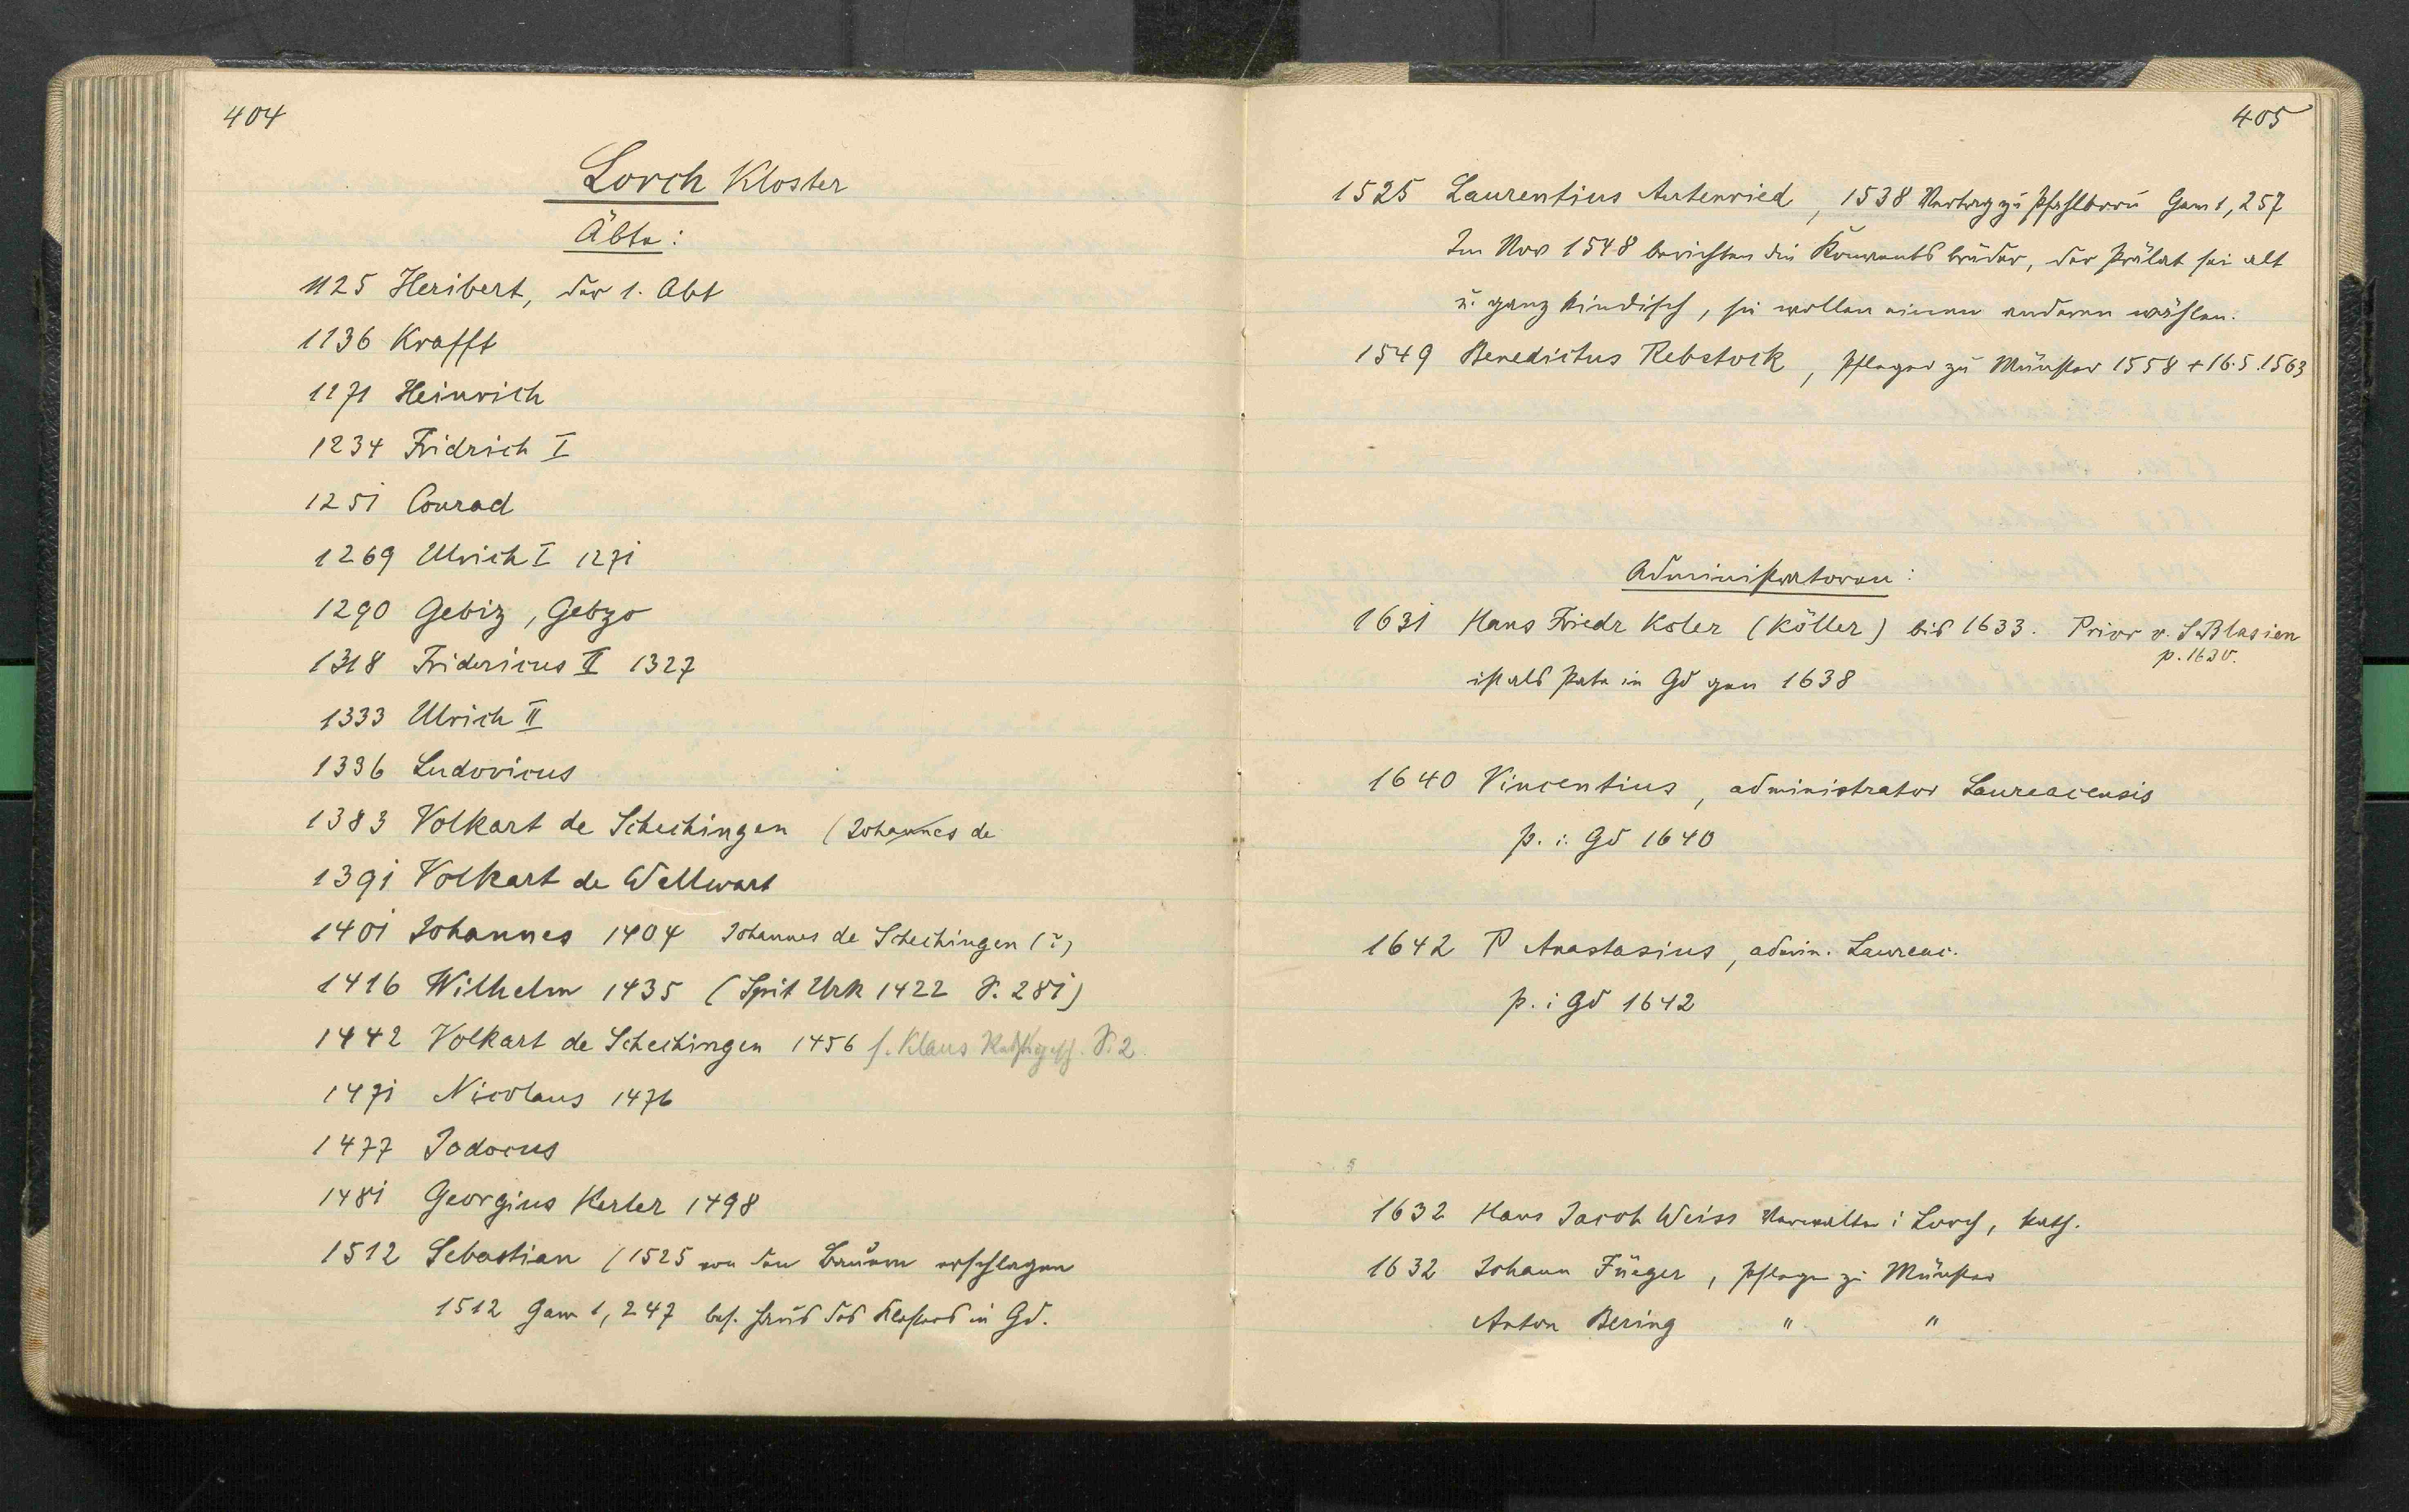 404
Lorch Kloster
Äbte:
1125 Heribert, der 1. Abt
1136 Krafft
1171 Heinrich
1234 Fridrich I
1251 Conrad
1269 Ulrich I 1271
1290 Gebiz, Gebzo
1318 Fridericus II 1327
1333 Ulrich II
1336 Ludovicus
1383 Volkart de Schechingen (Johannes de
1391 Volkart de Wellwart
1401 Johannes 1404 Johannes de Schechingen (?)
1416 Wilhelm 1435 (Spit Urk 1422 S. 281)
1442 Volkart de Schechingen 1456 s. Klaus S. 2
1471 Nicolaus 1476
1477 Jodocus
1481 Georgius Kerler 1498
1512 Sebastian (1525 von den Bauern erschlagen
1512 Gam 1, 247 bes. Haus des Klosters in Gd.
405
1525 Laurentius Autenried, 1538 Vertrag zu Pfahlbronn Gam 1, 257
Im Nov 1548 berichten die Konventsbrüder, der Prälat sei alt
u. ganz kindisch, sie wollen einen anderen wählen.
1549 Benedictus Rebstock, Pfleger zu Münster 1558 + 16.5.1563
Administratoren:
1631 Hans Friedr Koler (Köller) bis 1633. Prior v. S Blasien
p. 1630.
ist als Pate in Gd gen 1638
1640 Vincentius, administrator Laureacensis
p. i. Gd 1640
1642 P Anastasius, admin. Laureac.
p. i Gd 1642
1632 Hans Jacob Weiss Verwalter i Lorch, kath.
1632 Johann Füeger, Pfleger zu Münster
Anton Bering " "